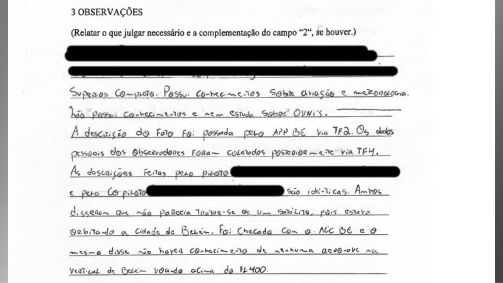 3 OBSERVAÇÕES
(Relatar o que julgar necessário e a complementação do campo "2", se houver.)
Superior Completo. Possui conhecimentos sobre aviação e meteorologia.
Não possui conhecimentos e nem estuda sobre OVNI's.
A descrição do Fato foi passada pelo APP BE via TF2. Os dados
pessoais dos observadores foram coletados posteriormente via TF4.
As descrições feitas pelo piloto
e pelo copiloto são idênticas. Ambos
disseram que não parecia tratar-se de um satélite, pois estava
orbitando a cidade de Belém. Foi checado com o ACC BE e o
mesmo disse não haver conhecimento de nenhuma aeronave na
vertical de Belém voando acima do FL400.